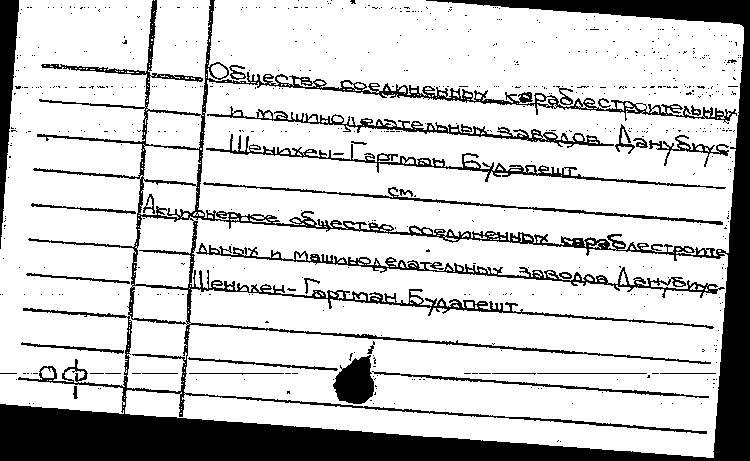 Общество соединенных караблестроительных
и машиноделательных заводов Данубиус-
Шенихен-Гартман. Будапешт.
см.
Акционерное общество соединенных караблестроите
льных и машиноделательных заводов Данубиус-
Шенихен-Гартман. Будапешт.
ОФ